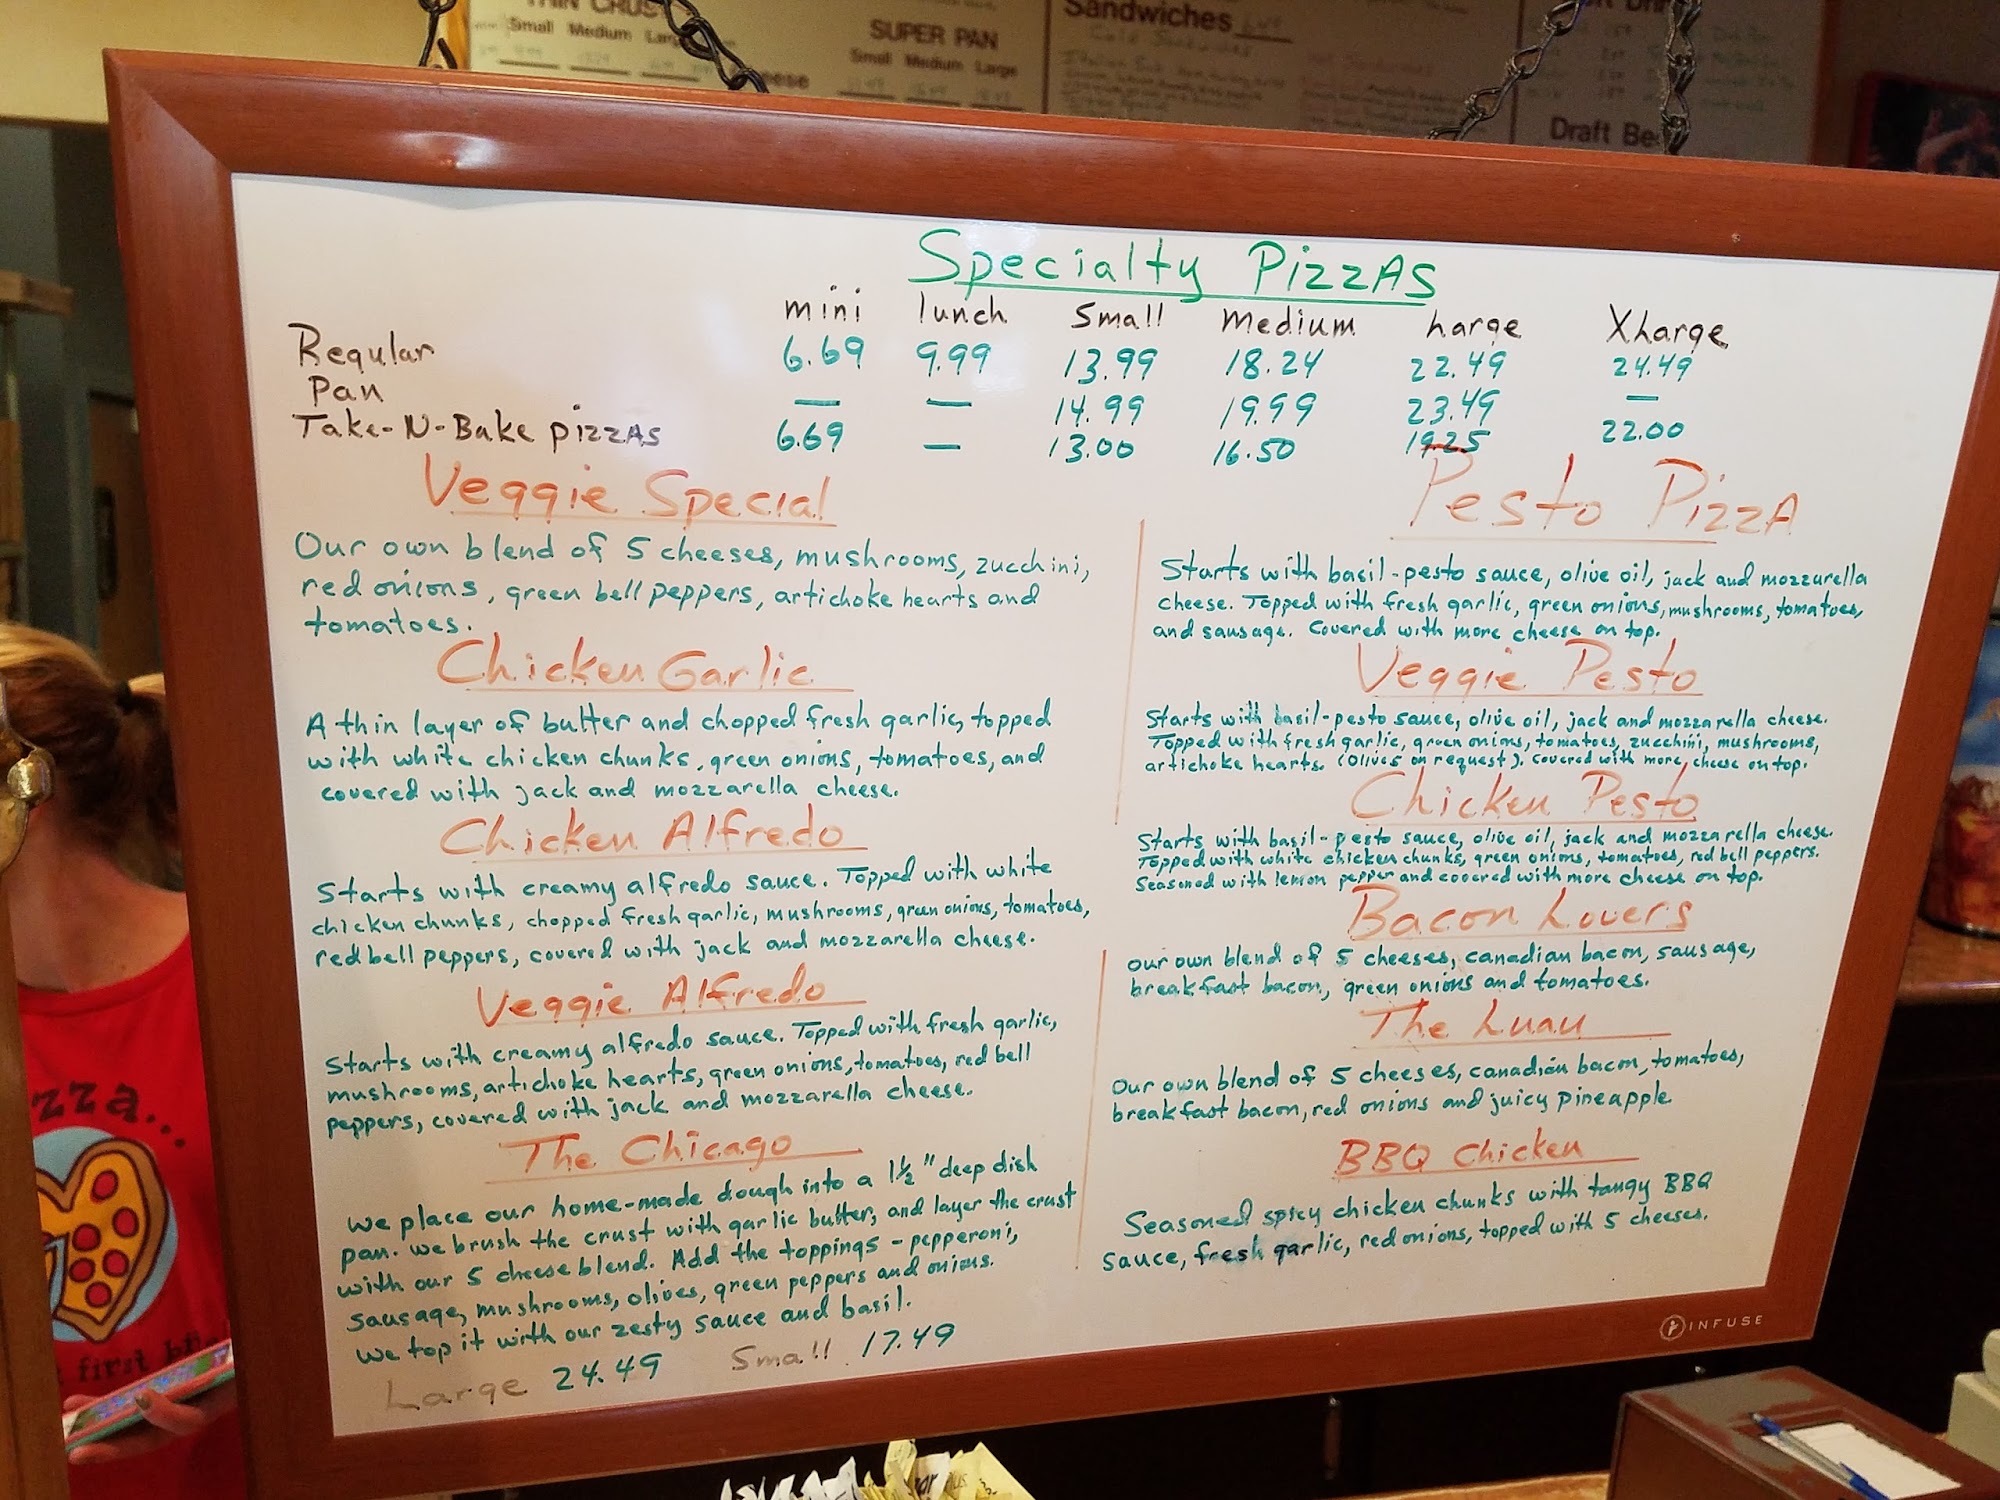 THIN CRUST
Small Medium Large
SUPER PAN
Small Medium Large
Cheese
Sandwiches
Draft Bee
Specialty PizzAs
mini lunch Small Medium Large XLarge
Regular 6.69 9.99 13.99 18.24 22.49 24.49
Pan — — 14.99 19.99 23.49 —
Take-N-Bake pizzAs 6.69 — 13.00 16.50 19.25 22.00
Veggie Special
Our own blend of 5 cheeses, mushrooms, zucchini,
red onions, green bell peppers, artichoke hearts and
tomatoes.
Chicken Garlic
A thin layer of butter and chopped fresh garlic, topped
with white chicken chunks, green onions, tomatoes, and
covered with jack and mozzarella cheese.
Chicken Alfredo
Starts with creamy alfredo sauce. Topped with white
chicken chunks, chopped fresh garlic, mushrooms, green onions, tomatoes,
red bell peppers, covered with jack and mozzarella cheese.
Veggie Alfredo
Starts with creamy alfredo sauce. Topped with fresh garlic,
mushrooms, artichoke hearts, green onions, tomatoes, red bell
peppers, covered with jack and mozzarella cheese.
The Chicago
We place our home-made dough into a 1½" deep dish
pan. We brush the crust with garlic butter, and layer the crust
with our 5 cheese blend. Add the toppings - pepperoni,
sausage, mushrooms, olives, green peppers and onions.
We top it with our zesty sauce and basil.
Large 24.49 Small 17.49
Pesto PizzA
Starts with basil-pesto sauce, olive oil, jack and mozzarella
cheese. Topped with fresh garlic, green onions, mushrooms, tomatoes,
and sausage. Covered with more cheese on top.
Veggie Pesto
Starts with basil-pesto sauce, olive oil, jack and mozzarella cheese.
Topped with fresh garlic, green onions, tomatoes, zucchini, mushrooms,
artichoke hearts. (Olives on request). Covered with more cheese on top.
Chicken Pesto
Starts with basil-pesto sauce, olive oil, jack and mozzarella cheese.
Topped with white chicken chunks, green onions, tomatoes, red bell peppers.
Seasoned with lemon pepper and covered with more cheese on top.
Bacon Lovers
Our own blend of 5 cheeses, canadian bacon, sausage,
breakfast bacon, green onions and tomatoes.
The Luau
Our own blend of 5 cheeses, canadian bacon, tomatoes,
breakfast bacon, red onions and juicy pineapple
BBQ Chicken
Seasoned spicy chicken chunks with tangy BBQ
sauce, fresh garlic, red onions, topped with 5 cheeses.
INFUSE
zza...
first